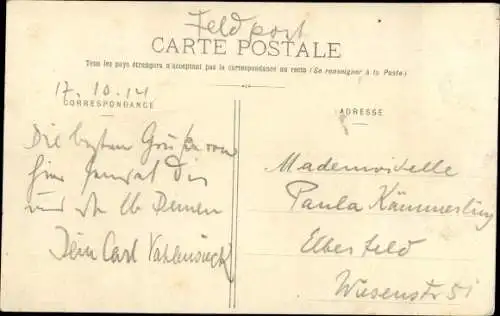 Feldpost
CARTE POSTALE
Tous les pays étrangers n'acceptent pas la correspondance au recto (Se renseigner à la Poste)
17.10.14
CORRESPONDANCE
ADRESSE
Die besten Grüße von
hier sendet Dir
und
Dein Carl Vahlensieck
Mademoiselle
Paula Kämmerling
Elberfeld
Wiesenstr 51